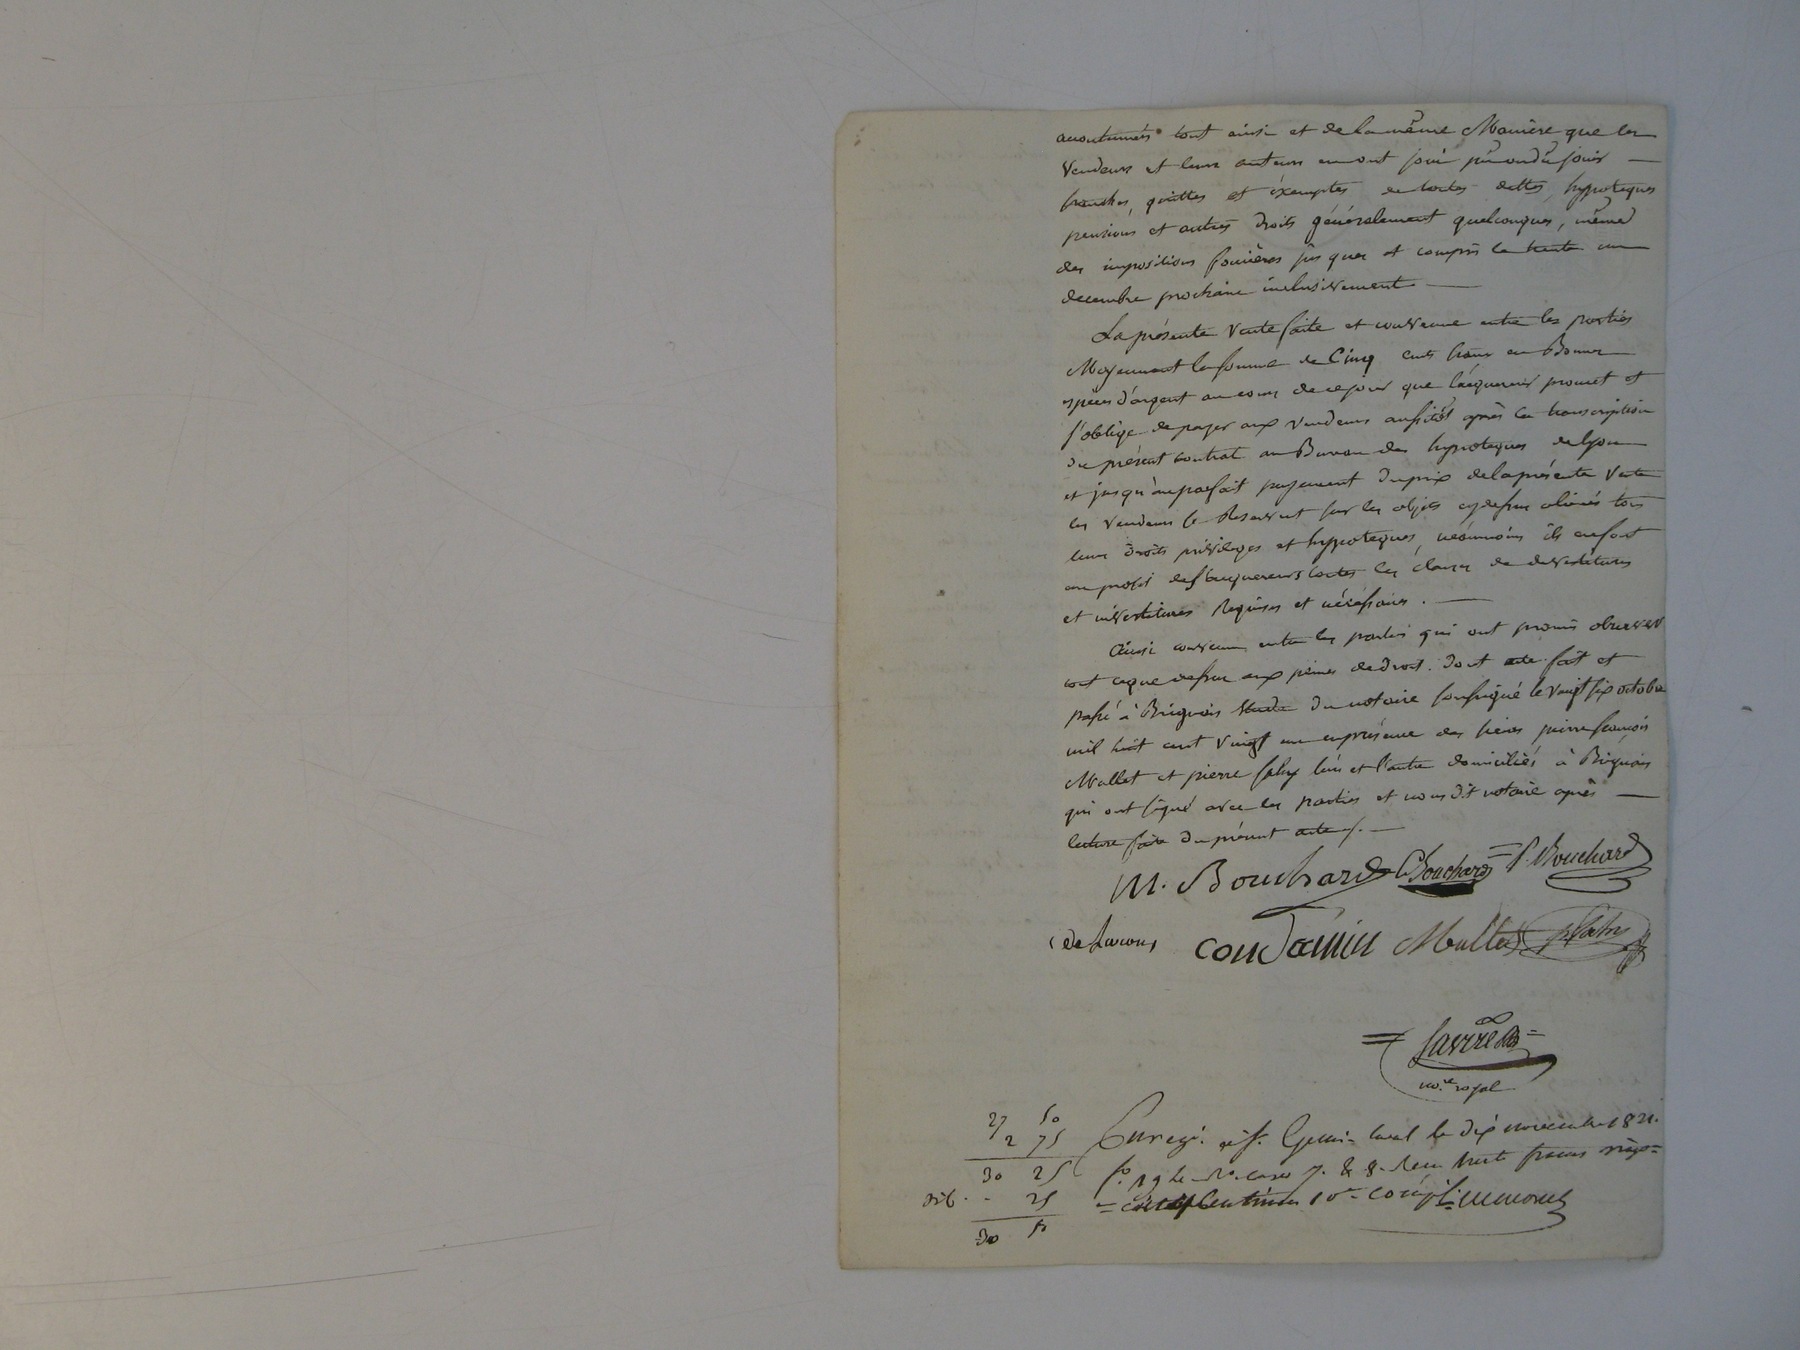 accoutumés tout ainsi et de la même Manière que les
Vendeurs et leurs auteurs en ont joui pû ou dû jouir —
franches, quittes et éxemptes de toutes dettes, hypoteques
pensions et autres droits généralement quelconques, même
des impositions foncières jusques et compris le trente un
decembre prochain inclusivement —
La présente Vente faite et convenue entre les parties
Moyennant la somme de Cinq cents francs en Bonnes
espèces d'argent au cours de ce jour que l'acquereur promet et
s'oblige de payer aux vendeurs aussitôt après la transcription
du présent contrat au Bureau des hypoteques de Lyon
et jusqu'au parfait payement du prix de la présente Vente
les vendeurs se Reservent sur les objets cydessus aliénés tous
leurs droits privileges et hypoteques, néanmoins ils en font
au profit des acquereurs toutes les clauses de devestitures
et investitures Requises et nécéssaires. —
Ainsi convenu entre les parties qui ont promis observer
tout ceque dessus aux peines de droit. Dont acte fait et
passé à Brignais Etude du notaire soussigné le vingt six octobre
mil huit cent vingt un en présence des sieurs pierre françois
Mallet et pierre l'un et l'autre domiciliés à Brignais
qui ont signé avec les parties et nous dit notaire après —
lecture faite du présent acte /. —
M. Bouchard C Bouchard P. Bouchard
Condamin Mallet
no.re royal
27 50
2 75
30 25
25
30 50
Enregt. à St. Genis-laval le dix novembre 1821.
f.o 19 Ro. cases 7. & 8. Reçu trente francs vingt=
=cinq Centimes 10e compris.